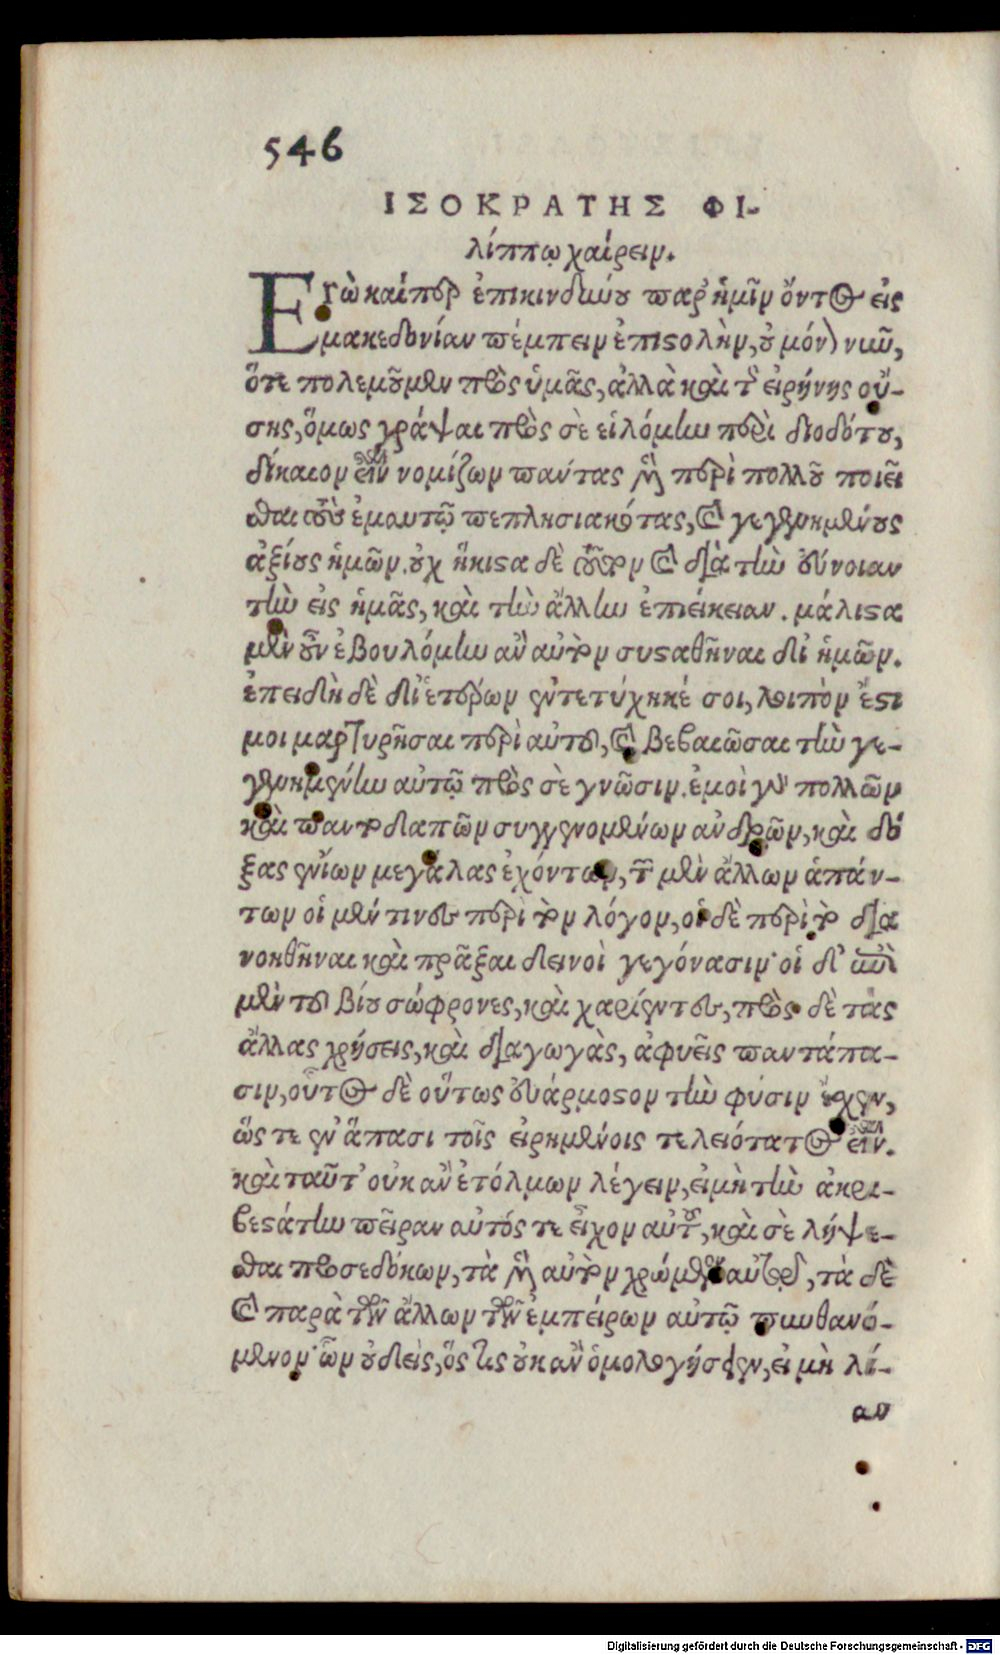 546
ΙΣΟΚΡΑΤΗΣ ΦΙ-
λίππῳ χαίρειν.
Εγὼ καίπερ ἐπικινδύνου παρ' ἡμῖν ὄντος εἰς
μακεδονίαν πέμπειν ἐπιστολὴν, οὐ μόνον νῦν,
ὅτε πολεμοῦμεν πρὸς ὑμᾶς, ἀλλὰ καὶ τῆς εἰρήνης οὔ-
σης, ὅμως γράψαι πρὸς σὲ εἱλόμην περὶ διοδότου,
δίκαιον εἶναι νομίζων πάντας μὲν περὶ πολλοῦ ποιεῖ
σθαι τοὺς ἐμαυτῷ πεπλησιακότας, καὶ γεγενημένους
ἀξίους ἡμῶν. οὐχ ἥκιστα δὲ τοῦτον καὶ διὰ τὴν εὔνοιαν
τὴν εἰς ἡμᾶς, καὶ τὴν ἄλλην ἐπιείκειαν. μάλιστα
μὲν οὖν ἐβουλόμην ἂν αὐτὸν συσταθῆναι δι' ἡμῶν.
ἐπειδὴ δὲ δι' ἑτέρων ἐντετύχηκέ σοι, λοιπὸν ἔστι
μοι μαρτυρῆσαι περὶ αὐτοῦ, καὶ βεβαιῶσαι τὴν γε-
γενημένην αὐτῷ πρὸς σὲ γνῶσιν. ἐμοὶ γὰρ πολλῶν
καὶ παντοδαπῶν συγγενομένων ἀνδρῶν, καὶ δό
ξας ἐνίων μεγάλας ἐχόντων, τῶν μὲν ἄλλων ἁπάν-
των οἱ μέν τινες περὶ τὸν λόγον, οἱ δὲ περὶ τὸ δια
νοηθῆναι καὶ πρᾶξαι δεινοὶ γεγόνασιν· οἱ δ' ἐπὶ
μὲν τοῦ βίου σώφρονες, καὶ χαρίεντες, πρὸς δὲ τὰς
ἄλλας χρήσεις, καὶ διαγωγὰς, ἀφυεῖς παντάπα-
σιν, οὗτος δὲ οὕτως εὐάρμοστον τὴν φύσιν ἔσχεν,
ὥς τε ἐν ἅπασι τοῖς εἰρημένοις τελειότατος εἶναι.
καὶ ταῦτ' οὐκ ἂν ἐτόλμων λέγειν, εἰ μὴ τὴν ἀκρι-
βεστάτην πεῖραν αὐτός τε εἶχον αὐτοῦ, καὶ σὲ λήψε-
σθαι προσεδόκων, τὰ μὲν αὐτὸν χρώμενον αὐτῷ, τὰ δὲ
καὶ παρὰ τῶν ἄλλων τῶν ἐμπείρων αὐτῷ πυνθανό-
μενον· ὧν οὐδεὶς, ὅς τις οὐκ ἂν ὁμολογήσειεν, εἰ μὴ λί-
αν
Digitalisierung gefördert durch die Deutsche Forschungsgemeinschaft - DFG